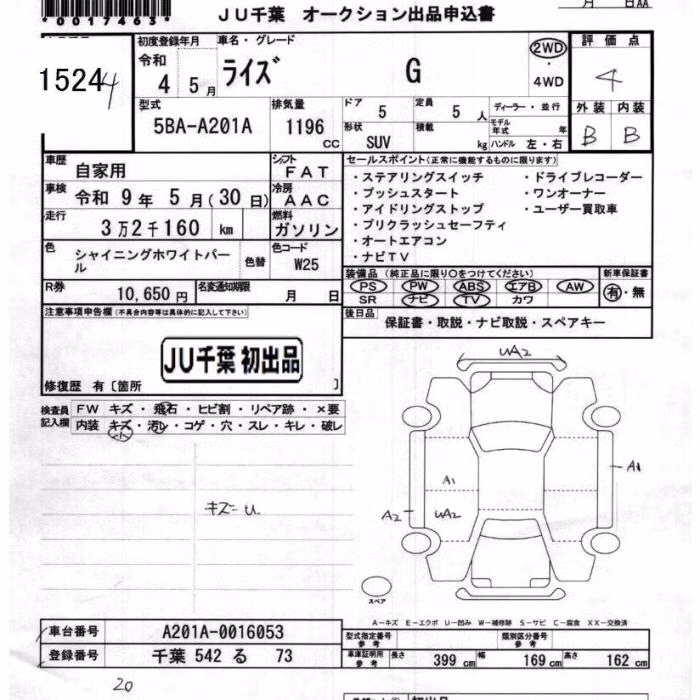 *0017463*
ＪＵ千葉　オークション出品申込書
月　日AA
15244
初度登録年月
令和
4 5月
車名・グレード
ライズ G
2WD
・
4WD
評価点
4
外装 内装
B B
型式
5BA-A201A
排気量
1196 cc
ドア
5
定員
5 人
形状
SUV
積載
kg
ディーラー・並行
モデル年式 年
ハンドル 左・右
車歴
自家用
車検
令和 9年 5月(30日)
走行
3万2千160 km
色
シャイニングホワイトパール
色替
シフト
FAT
冷房
AAC
燃料
ガソリン
色コード
W25
R券
10,650円
名変通知期限
月 日
セールスポイント(正常に機能するものに限ります)
・ステアリングスイッチ ・ドライブレコーダー
・プッシュスタート ・ワンオーナー
・アイドリングストップ ・ユーザー買取車
・プリクラッシュセーフティ
・オートエアコン
・ナビTV
装備品(純正品に限り○をつけてください)
PS PW ABS エアB AW
SR ナビ TV カワ
新車保証書
有・無
後日品
保証書・取説・ナビ取説・スペアキー
注意事項申告欄(不具合内容等は具体的に記入して下さい)
JU千葉 初出品
修復歴 有〔箇所 〕
検査員記入欄
FW キズ・飛石・ヒビ割・リペア跡・×要
内装 キズ・汚レ・コゲ・穴・スレ・キレ・破レ
小
キズ=U
UA2
A1
A1
A2
UA2
スペア
A－キズ E－エクボ U－凹み W－補修跡 S－サビ C－腐食 XX－交換済
車台番号 A201A-0016053
登録番号 千葉 542 る 73
型式指定番号
参考
類別区分番号
参考
車庫証明用
参考
長さ 399 cm 幅 169 cm 高さ 162 cm
20
初出品